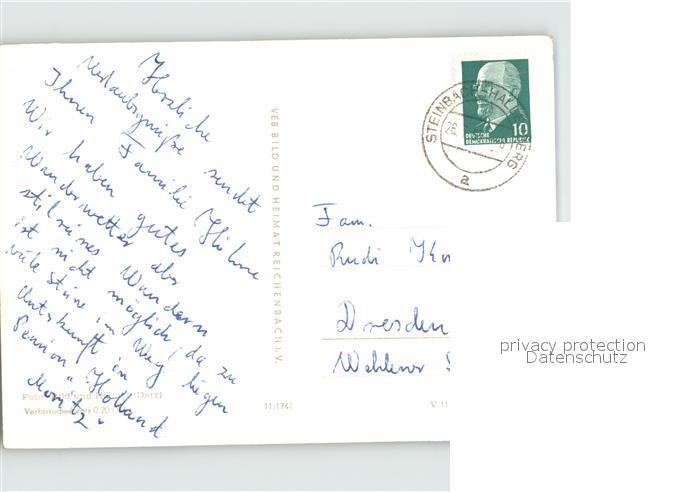 Herzliche
Urlaubsgrüße sendet
Ihnen Familie Höhne
Wir haben gutes
Wanderwetter aber
stilreines Wandern
ist nicht möglich, da zu
viele Steine im Weg liegen
Unterkunft in
Pension "Holland
Moritz"
VEB BILD UND HEIMAT REICHENBACH I. V.
STEINBACH-HALLENBERG
a
10
DEUTSCHE
DEMOKRATISCHE REPUBLIK
Fam.
Rudi
Dresden
Wehlener
Foto: Bild und
Verbraucherpreis 0.20
11/174
V 11
privacy protection
Datenschutz